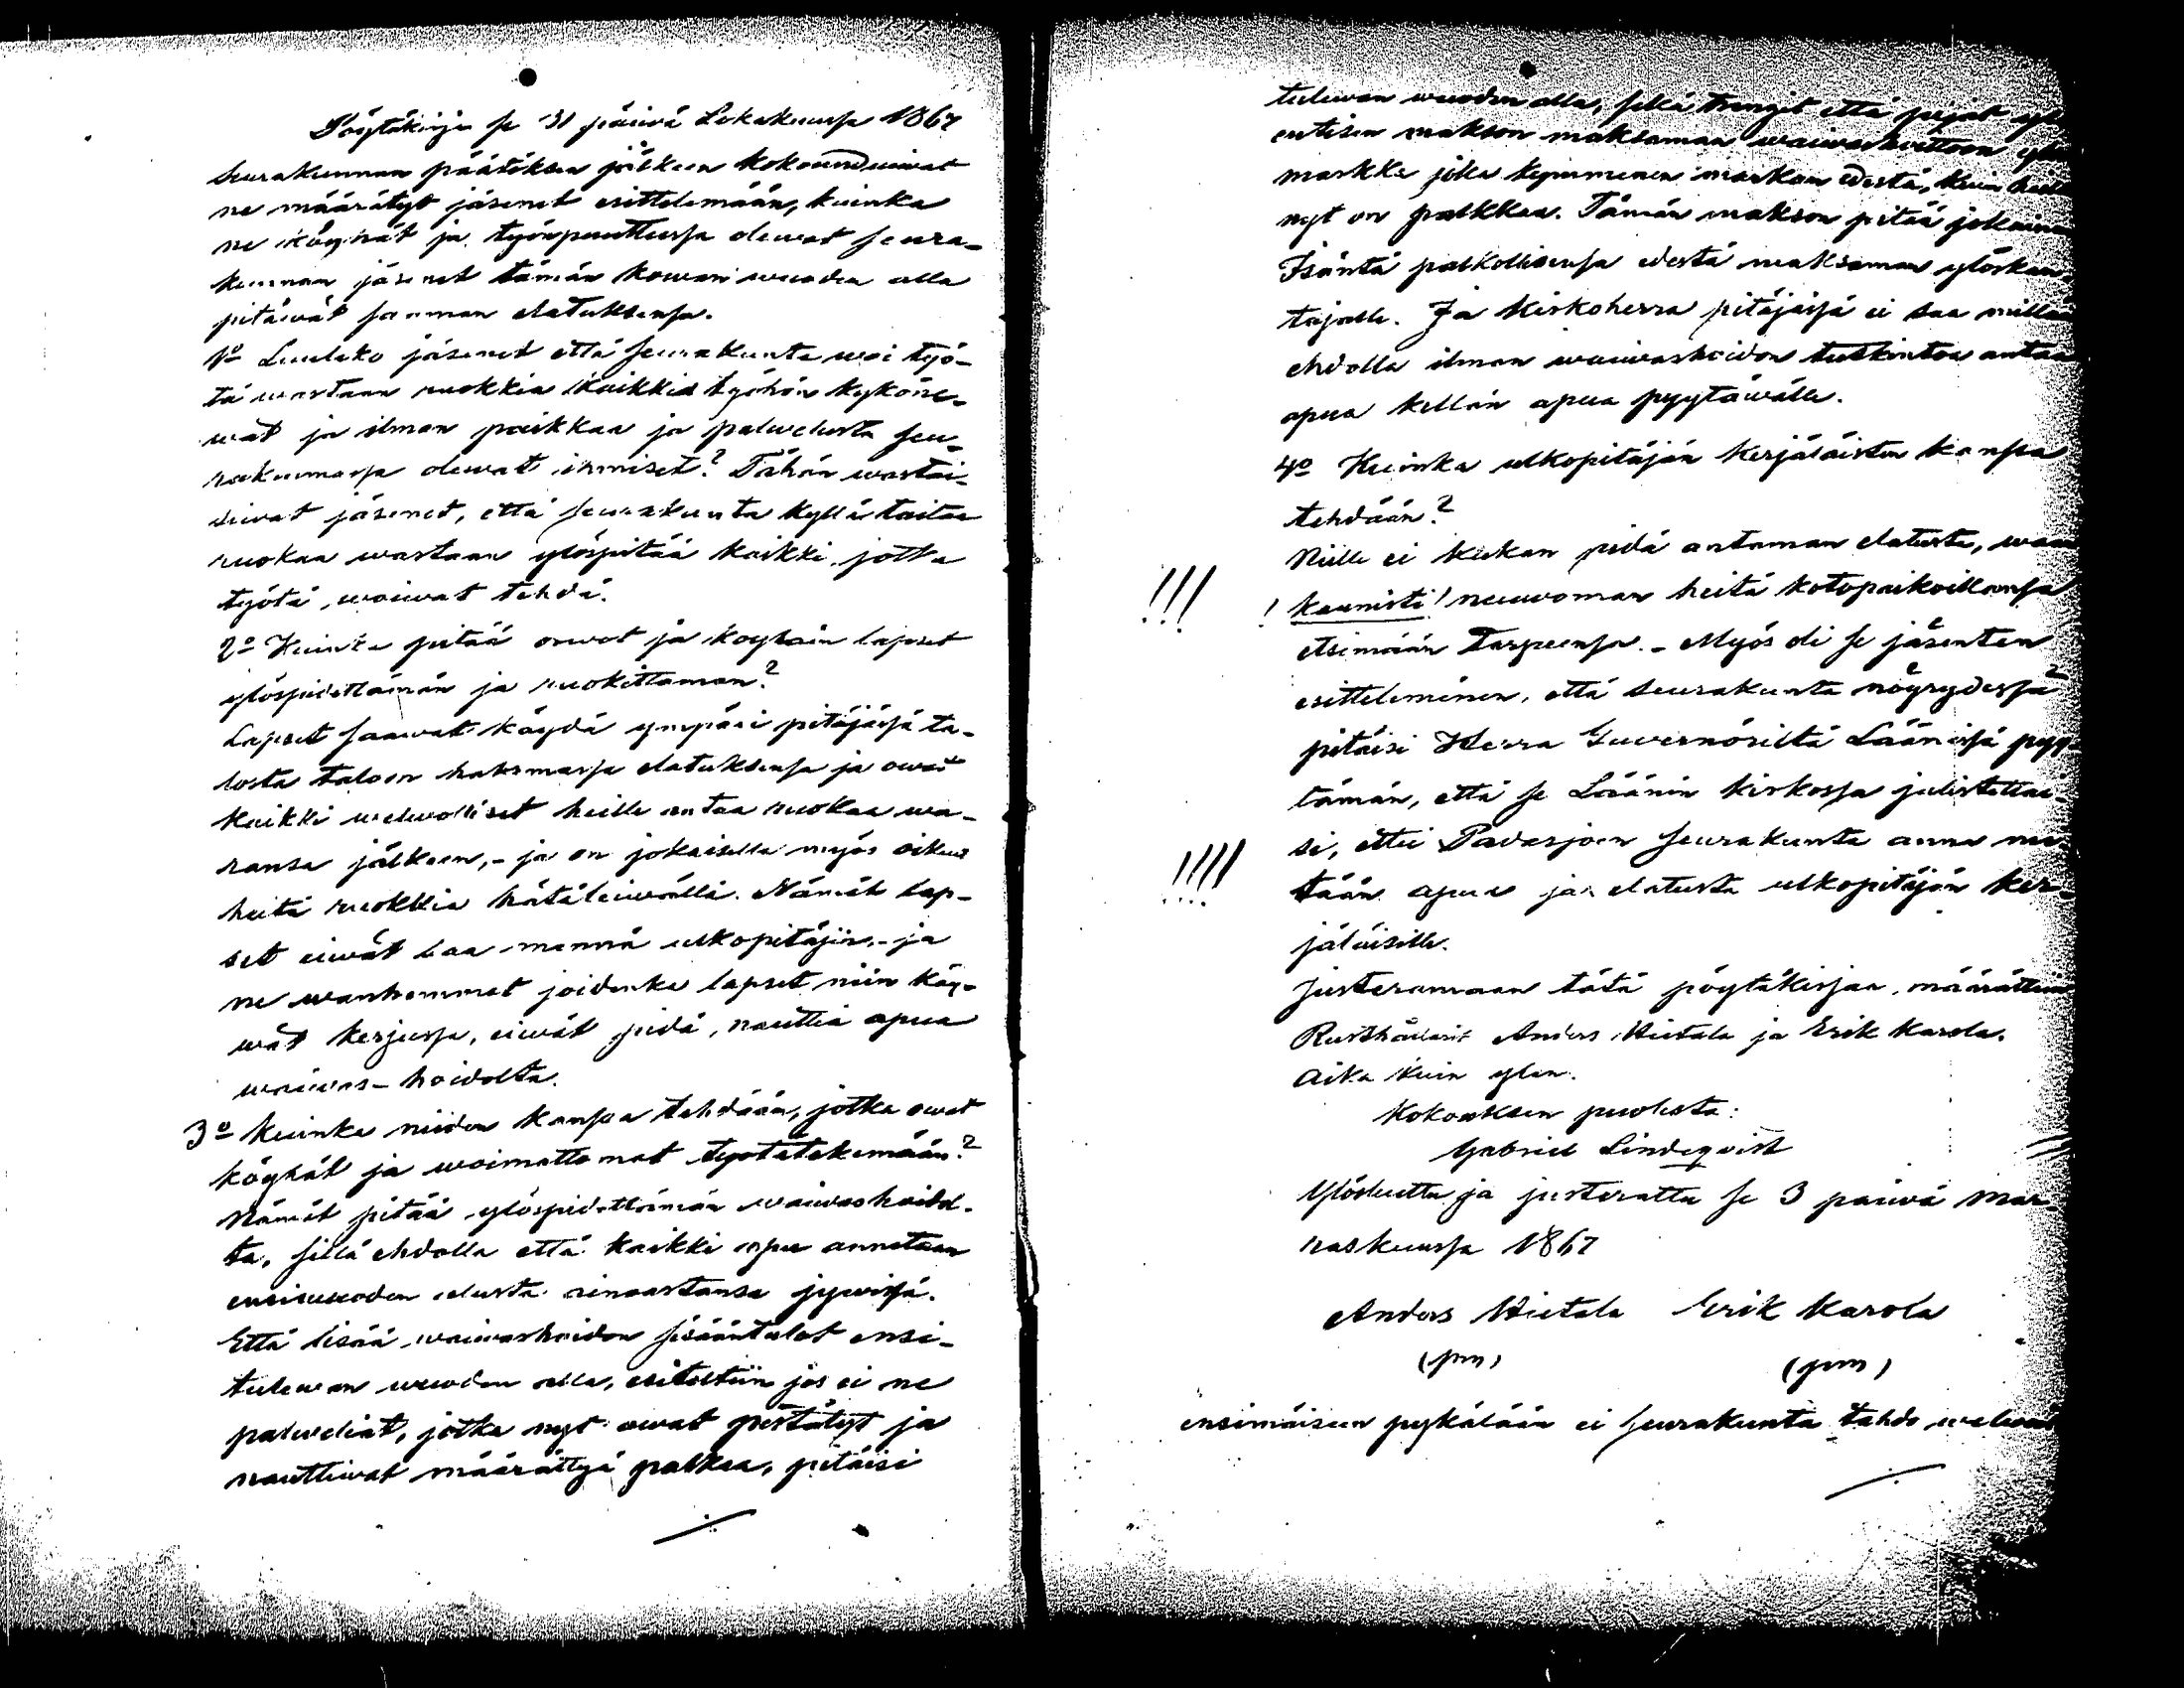 Pöytäkirja se 31 päivä Lokakuussa 1867
Seurakunnan päätöksen jälkeen kokoundeiwat
ne määrätyt jäsenet esittelemään, kuinka
ne köyhät ja työnpuuttussa olewat seura-
kunnan jäsenet tämän kowan wuoden alla
pitäwät saaman elatuksensa.
1o Luuleko jäsenet että seurakunta woi työ-
tä wastaan ruokkia kaikkia työhön kykene-
wät ja ilman paikkaa ja palwelusta seu-
rakunnassa olewat ihmiset? Tähän wastai-
siwat jäsenet, että seurakunta kyllä taitaa
ruokaa wastaan ylöspitää kaikki jotka
työtä woiwat tehdä.
2o Kuinka pitää orwot ja köyhäin lapset
ylöspidettämän ja ruokittaman?
Lapset saawat käydä ympäri pitäjässä ta-
losta taloon hakemassa elatuksensa ja owat
kaikki welwolliset heille antaa ruokaa wa-
ransa jälkeen, - ja on jokaisella myös oikeus
heitä ruokkia hätäleiwällä. Nämät lap-
set eiwät saa mennä ulkopitäjiin, - ja
ne wanhemmat joidenka lapset niin käy-
wät kerjussa, eiwät pidä nauttia apua
waiwas-hoidolta.
3o Kuinka niiden kanssa tehdään, jotka owat
köyhät ja woimattomat työtätekemään?
Nämät pitää ylöspidettämän waiwashoidol-
ta, sillä ehdolla että kaikki apu annetaan
ensiwuoden alusta ainoastansa jywissä.
Että lisää waiwashoidon sisääntulot ensi-
tulewan wuoden alla, esitettiin jos ei ne
palweliat, jotka nyt owat pestätyt ja
nauttiwat määrättyä palkkaa, pitäisi
tulewan wuoden alla, sekä trengit että pijat
entisen makson maksaman waiwashoittoon
markka joka kymmenen markan edestä, kuin
nyt on palkkaa. Tämän makson pitää jokainen
Isäntä palkollisensa edestä maksaman ylöskan-
tajalle. Ja Kirkoherra pitäjässä ei saa millän
ehdolla ilman waiwashoidon tutkintoa antaa
apua kellän apua pyytäwälle.
4o Kuinka ulkopitäjän kerjäläisten kanssa
tehdään?
Niille ei kukan pidä antaman elatusta, waan
!!! ! kauniisti! neuwoman heitä kotopaikoillansa
etsimään tarpeensa. - Myös oli se jäsenten
esitteleminen, että seurakunta nöyrydessä
pitäisi Herra Guvernöriltä Läänissä pyy-
tämän, että se Läänin kirkossa julistettai-
si, ettei Padasjoen seurakunta anna mi-
!!!! tään apua ja elatusta ulkopitäjän ker-
jäläisille.
Justeramaan tätä pöytäkirjaa määrättiin
Rusthållarit Anders Hietala ja Erik Karola.
Aika kuin ylen.
Kokouksen puolesta:
Gabriel Lindeqvist
Ylösluettu ja justerattu se 3 päiwä Mar-
raskuussa 1867
Anders Hietala Erik Karola
(pm) (pm)
ensimäiseen pykälään ei seurakunta tahdo